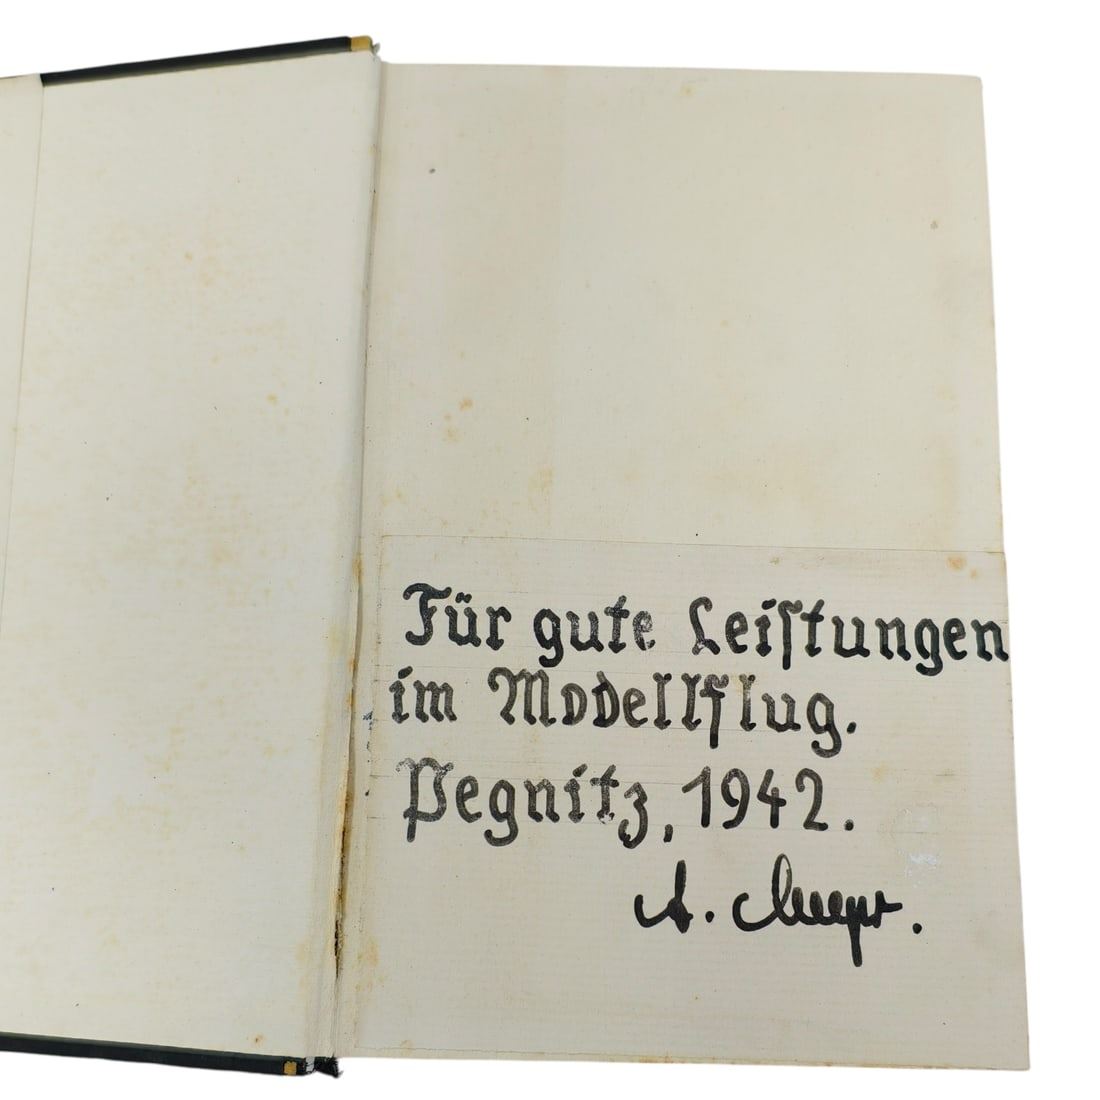 Für gute Leiſtungen
im Modellflug.
Pegnitz, 1942.
A.